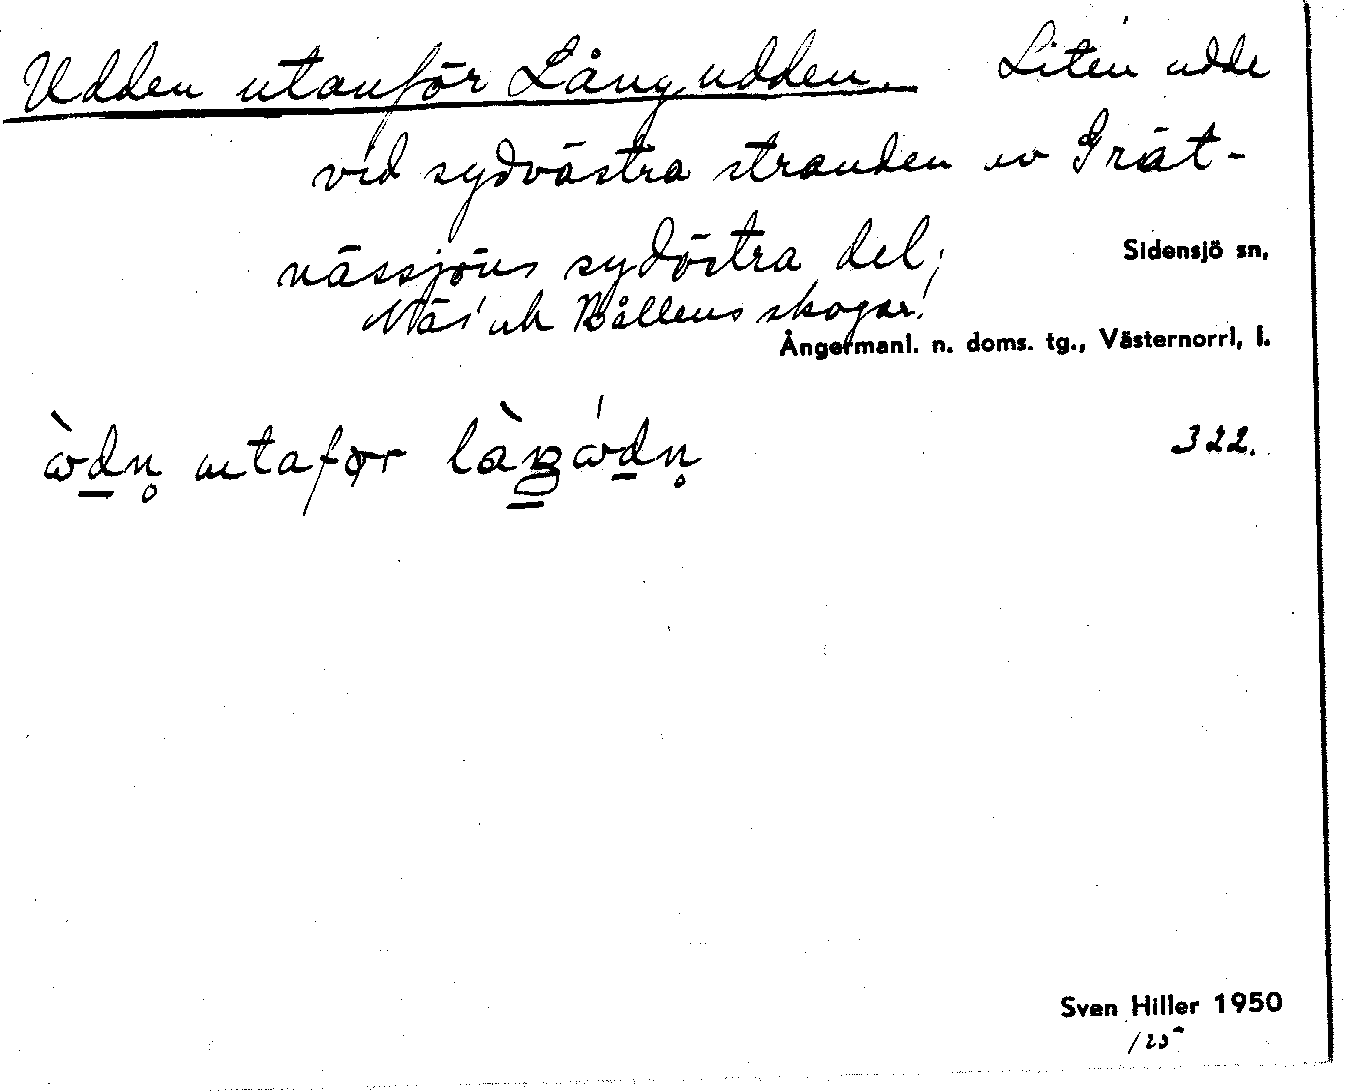 Udden utanför Långudden. Liten udde
vid sydvästra stranden av Grät-
nässjöns sydöstra del;
Näs' och Bållens skogar!
Sidensjö sn,
Ångermanl. n. doms. tg., Västernorrl, l.
322.
utafør
Sven Hiller 1950